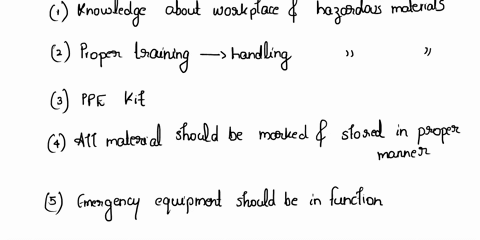 (1) Knowledge about workplace & hazardous materials
(2) Proper training → handling " "
(3) PPE Kit
(4) All material should be marked & stored in proper
manner
(5) Emergency equipment should be in function